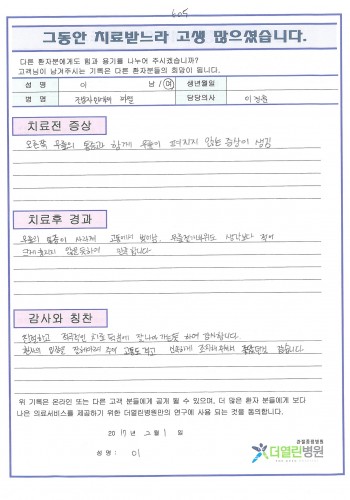 605
그동안 치료받느라 고생 많으셨습니다.
다른 환자분에게도 힘과 용기를 나누어 주시겠습니까?
고객님이 남겨주시는 기록은 다른 환자분들의 희망이 됩니다.
성 명 이 남 / 여 생년월일
병 명 전방십자인대 파열 담당의사 이
치료전 증상
오른쪽 무릎의 통증과 함께 무릎이 펴지지 않는 증상이 생김
치료후 경과
무릎의 통증이 사라져 고통에서 벗어남. 생각보다 적어
크게 않은듯하여 만족합니다
감사와 칭찬
친절하고 적극적인 치료 덕분에 감사합니다.
고통도 적고 신속하게 같습니다.
위 기록은 온라인 또는 다른 고객 분들에게 공개 될 수 있으며, 더 많은 환자 분들에게 보다
나은 의료서비스를 제공하기 위한 더열린병원만의 연구에 사용 되는 것을 동의합니다.
20 17 년 2 월 1 일
성 명 : 이
관절중점병원
더열린병원